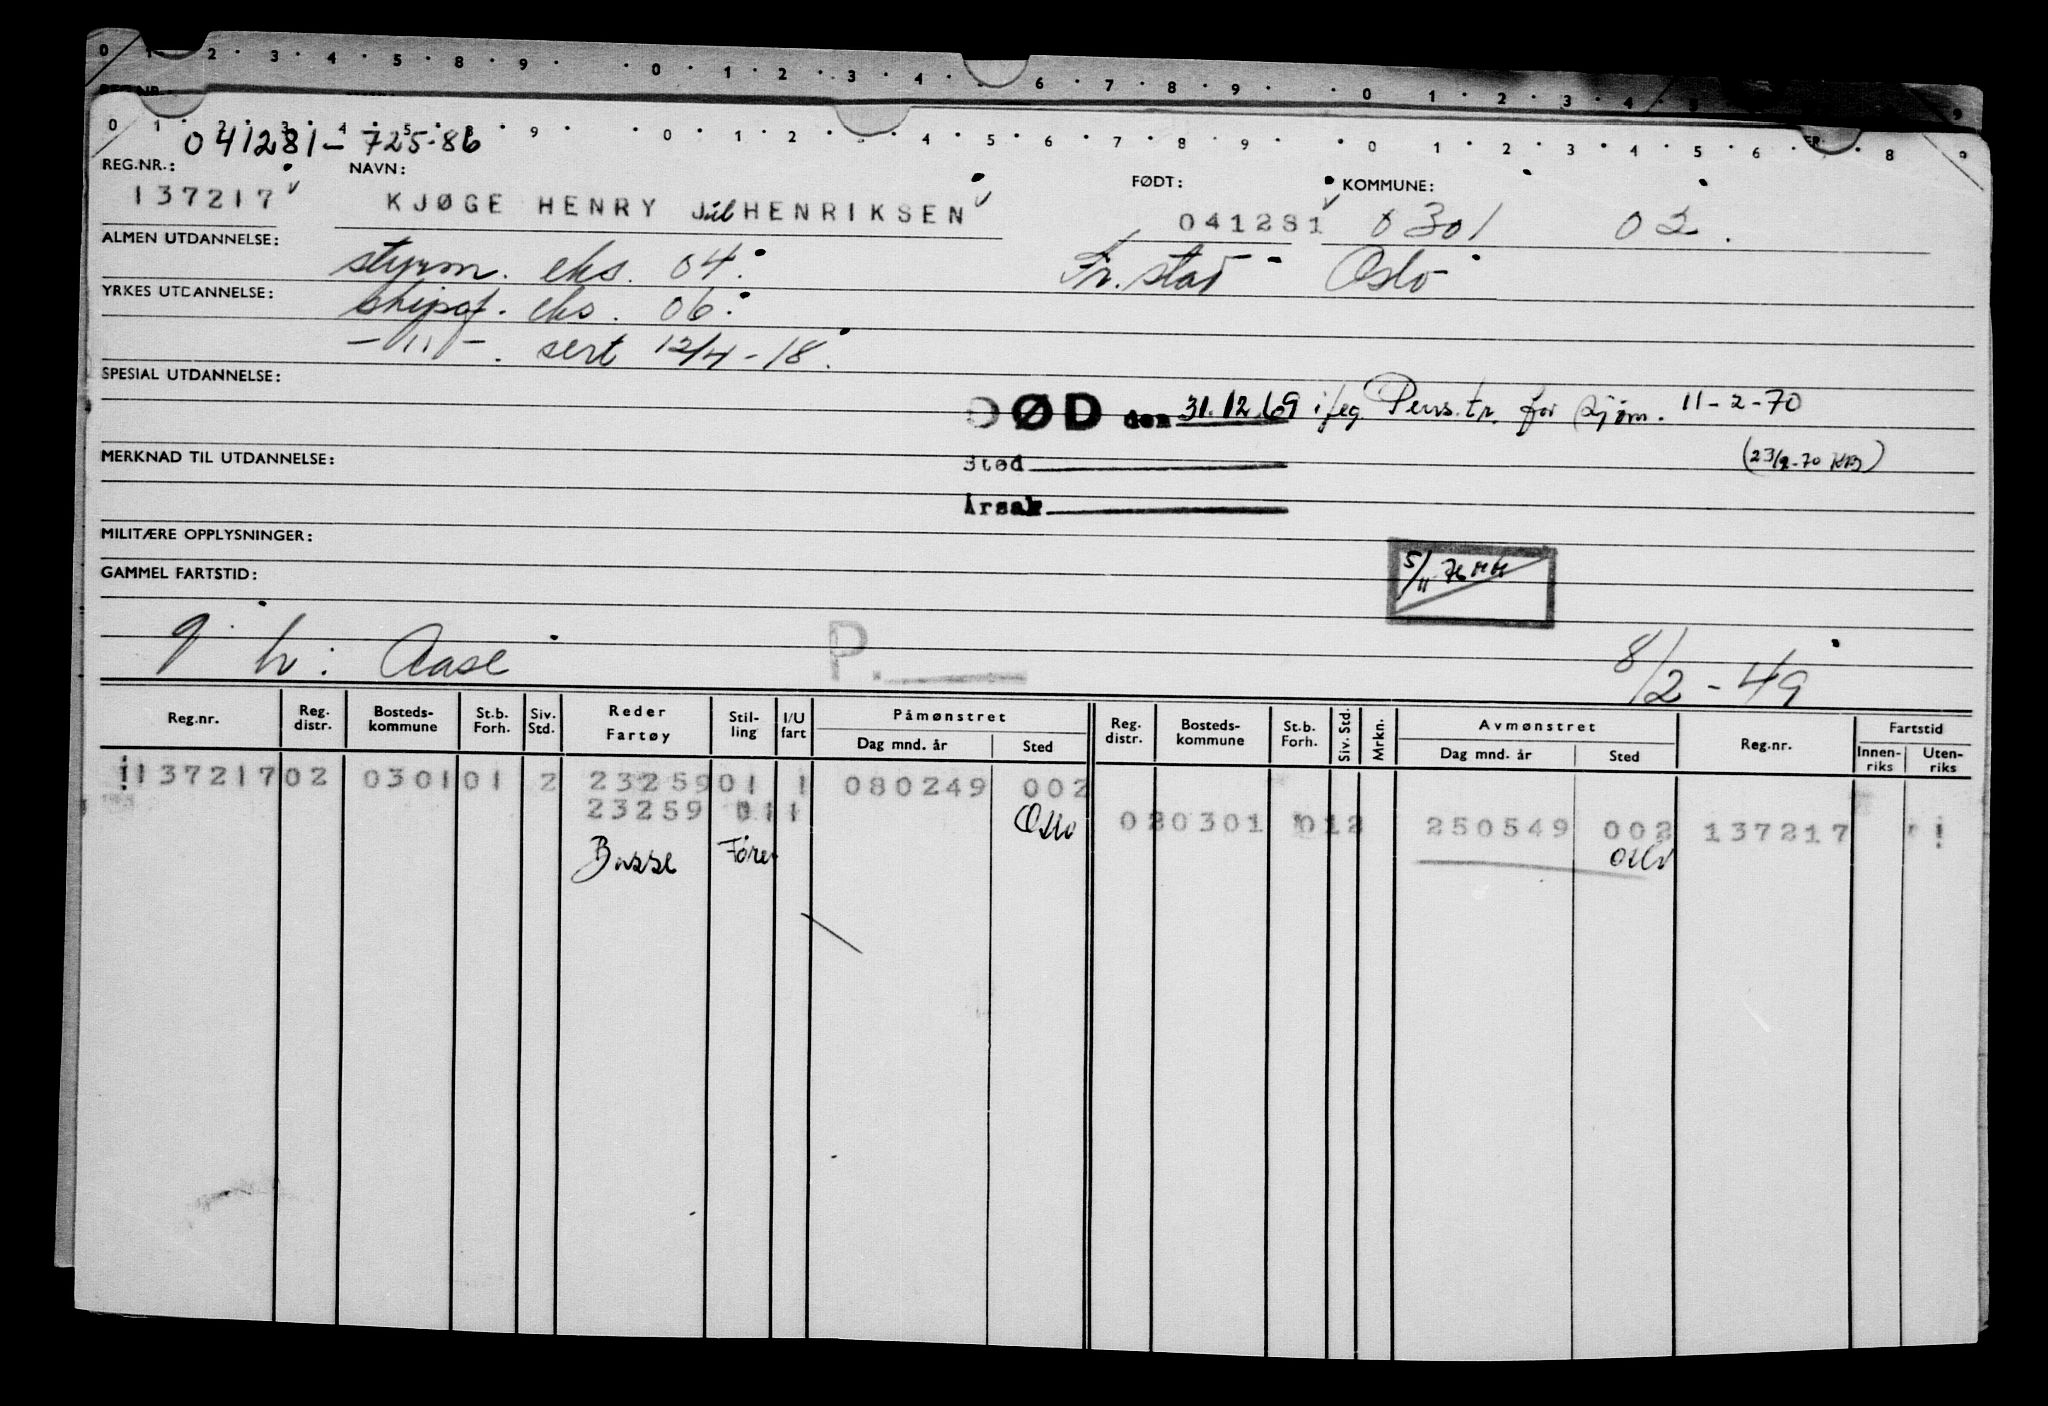 0 1 2 3 4 5 8 9 0 1 2 3 4 6 7 8 9 0 1 2 3 4 9
0 1 2 3 4 5 8 9 0 1 2 4 5 6 7 8 9 0 1 2 3 4 5 6 8 9
041281-725.86
REG.NR.: NAVN: FØDT: KOMMUNE:
137217 KJØGE HENRY HENRIKSEN 041281 0301 02.
ALMEN UTDANNELSE: styrm. eks. 04. Fr.stad Oslo
YRKES UTDANNELSE: skipsf. eks. 06.
-"-. sert 12/4-18.
SPESIAL UTDANNELSE:
DØD den 31.12.69 Pens.tr. for sjøm. 11-2-70
MERKNAD TIL UTDANNELSE: Sted (23/2-70 KB)
Årsak
MILITÆRE OPPLYSNINGER:
GAMMEL FARTSTID: 5/11
g. h: Aase P. 8/2-49
Reg.nr. Reg. distr. Bosteds-kommune St.b. Forh. Siv. Std. Reder Fartøy Stil-ling I/U fart Påmønstret Dag mnd. år Sted Reg. distr. Bosteds-kommune St.b. Forh. Siv. Std. Mrkn. Avmønstret Dag mnd. år Sted Reg.nr. Fartstid Innen-riks Uten-riks
137217 02 0301 01 2 23259 01 1 080249 002
23259 011 Oslo 020301 012 250549 002 137217
Basse Fører Oslo